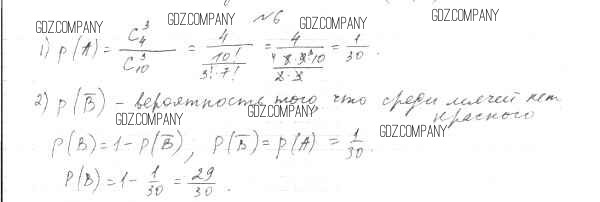 №6
GDZ.COMPANY GDZ.COMPANY GDZ.COMPANY
1) p(A) = C_4^3 / C_10^3 = 4 / (10! / (3!·7!)) = 4 / (8·9·10 / (2·3)) = 1/30.
2) p(B̄) – вероятность того что среди мячей нет красного
GDZ.COMPANY GDZ.COMPANY GDZ.COMPANY
P(B) = 1 - P(B̄); P(B̄) = p(A) = 1/30.
P(B) = 1 - 1/30 = 29/30.